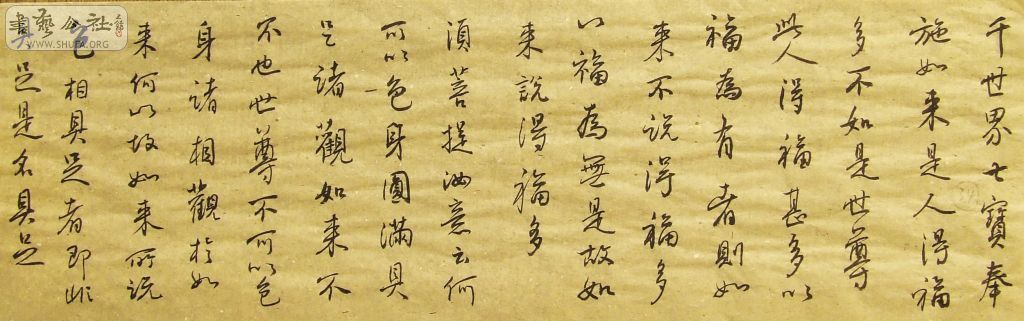 千世界七寶奉
施如来是人得福
多不如是世尊
此人得福甚多以
福為有者則如
来不說得福多
以福為無是故如
来說得福多
須菩提汝意云何
可以色身圓滿具
足諸觀如来不
不也世尊不可以色
身諸相觀於如
来何以故如来所說
色相具足者即非
具足是名具足
書藝公社
WWW.SHUFA.ORG